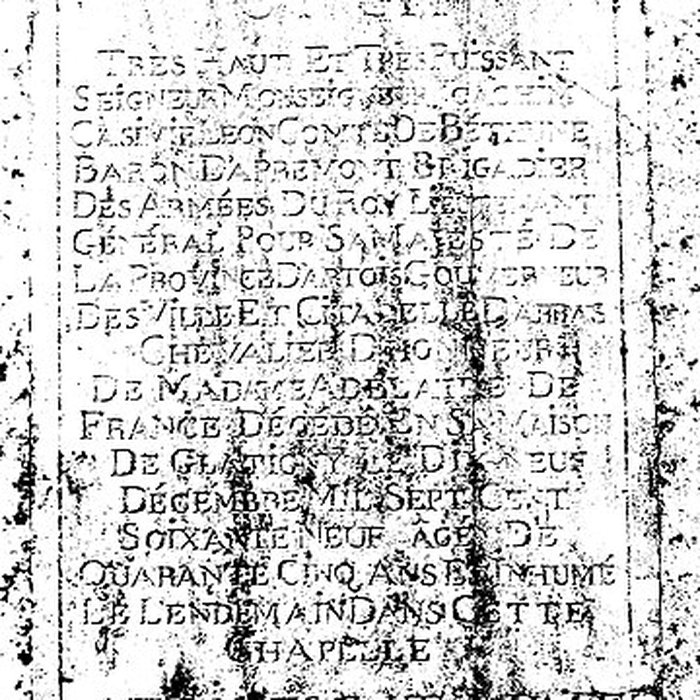 CY GIT
TRES HAUT ET TRES PUISSANT
SEIGNEUR MONSEIGNEUR
CASIMIR LEON COMTE DE BÉTHUNE
BARON D'APREMONT BRIGADIER
DES ARMÉES DU ROY LIEUTENANT
GÉNÉRAL POUR SA MAJESTÉ DE
LA PROVINCE D'ARTOIS GOUVERNEUR
DES VILLE ET CITADELLE D'ARRAS
CHEVALIER D'HONNEUR
DE MADAME ADELAIDE DE
FRANCE DÉCÉDÉ EN SA MAISON
DE GLATIGNY LE DIX NEUF
DÉCEMBRE MIL SEPT CENT
SOIXANTE NEUF ÂGÉ DE
QUARANTE CINQ ANS ET INHUMÉ
LE LENDEMAIN DANS CETTE
CHAPELLE